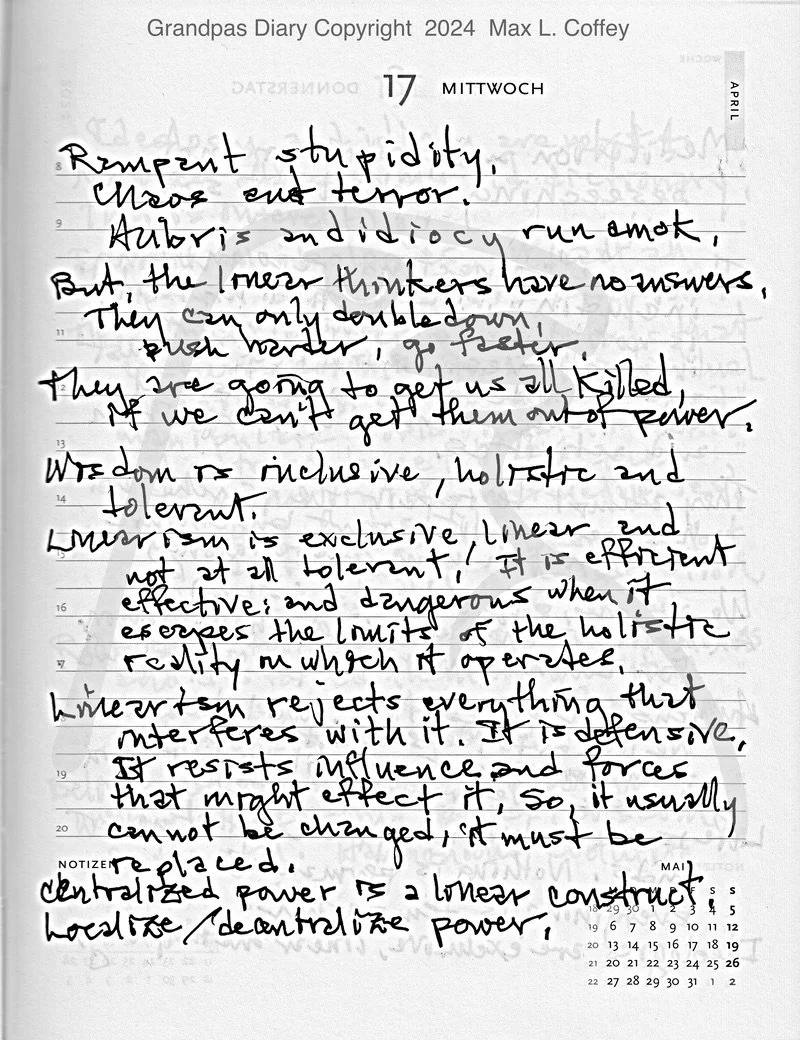 Grandpas Diary Copyright 2024 Max L. Coffey
17 MITTWOCH
APRIL
8 Rampant stupidity,
Chaos and terror.
9 Hubris and idiocy run amok,
But, the linear thinkers have no answers,
They can only double down,
11 push harder, go faster,
12 They are going to get us all killed,
if we can't get them out of power.
13
Wisdom is inclusive, holistic and
14 tolerant.
Linearism is exclusive, linear and
15 not at all tolerant! It is efficient
effective; and dangerous when it
16 escapes the limits of the holistic
17 reality in which it operates.
Linearism rejects everything that
interferes with it. It is defensive,
19 It resists influence and forces
that might effect it, So, it usually
20 cannot be changed, it must be
NOTIZEN replaced.
MAI
Centralized power is a linear construct,
Localize/decentralize power,
S S
18 29 30 1 2 3 4 5
19 6 7 8 9 10 11 12
20 13 14 15 16 17 18 19
21 20 21 22 23 24 25 26
22 27 28 29 30 31 1 2